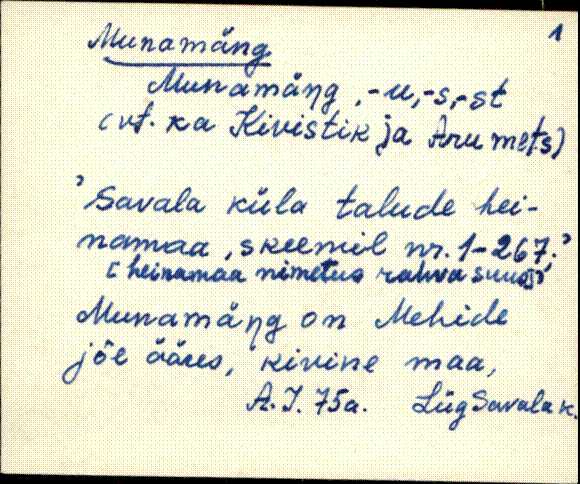 1
Munamäng
Munamäŋg, -u, -s, -st
(vt. ka Kivistik ja Aru mets)
'Savala küla talude hei-
namaa, skeemil nr. 1-267.'
[heinamaa nimetus rahva suus]
Munamäŋg on Mehide
jõe ääres, kivine maa,
A.J. 75a. Lüg Savala k.